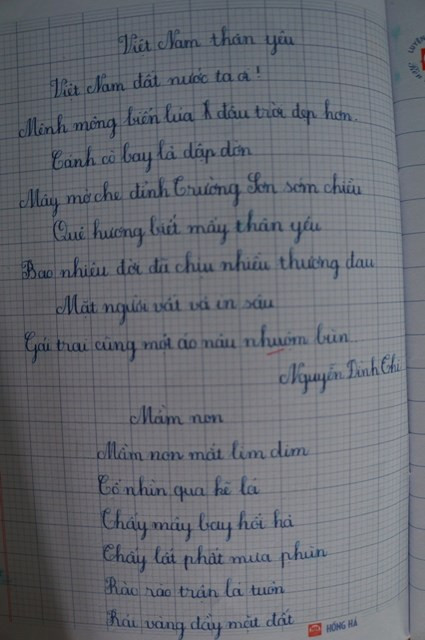 Việt Nam thân yêu
Việt Nam đất nước ta ơi!
Mênh mông biển lúa đâu trời đẹp hơn.
Cánh cò bay lả dập dờn
Mây mờ che đỉnh Trường Sơn sớm chiều
Quê hương biết mấy thân yêu
Bao nhiêu đời đã chịu nhiều thương đau
Mặt người vất vả in sâu
Gái trai cũng một áo nâu nhuộm bùn
Nguyễn Đình Thi
Mầm non
Mầm non mắt lim dim
Cố nhìn qua kẽ lá
Thấy mây bay hối hả
Thấy lất phất mưa phùn
Rào rào trận lá tuôn
Rải vàng đầy mặt đất
HỒNG HÀ
LUYỆN